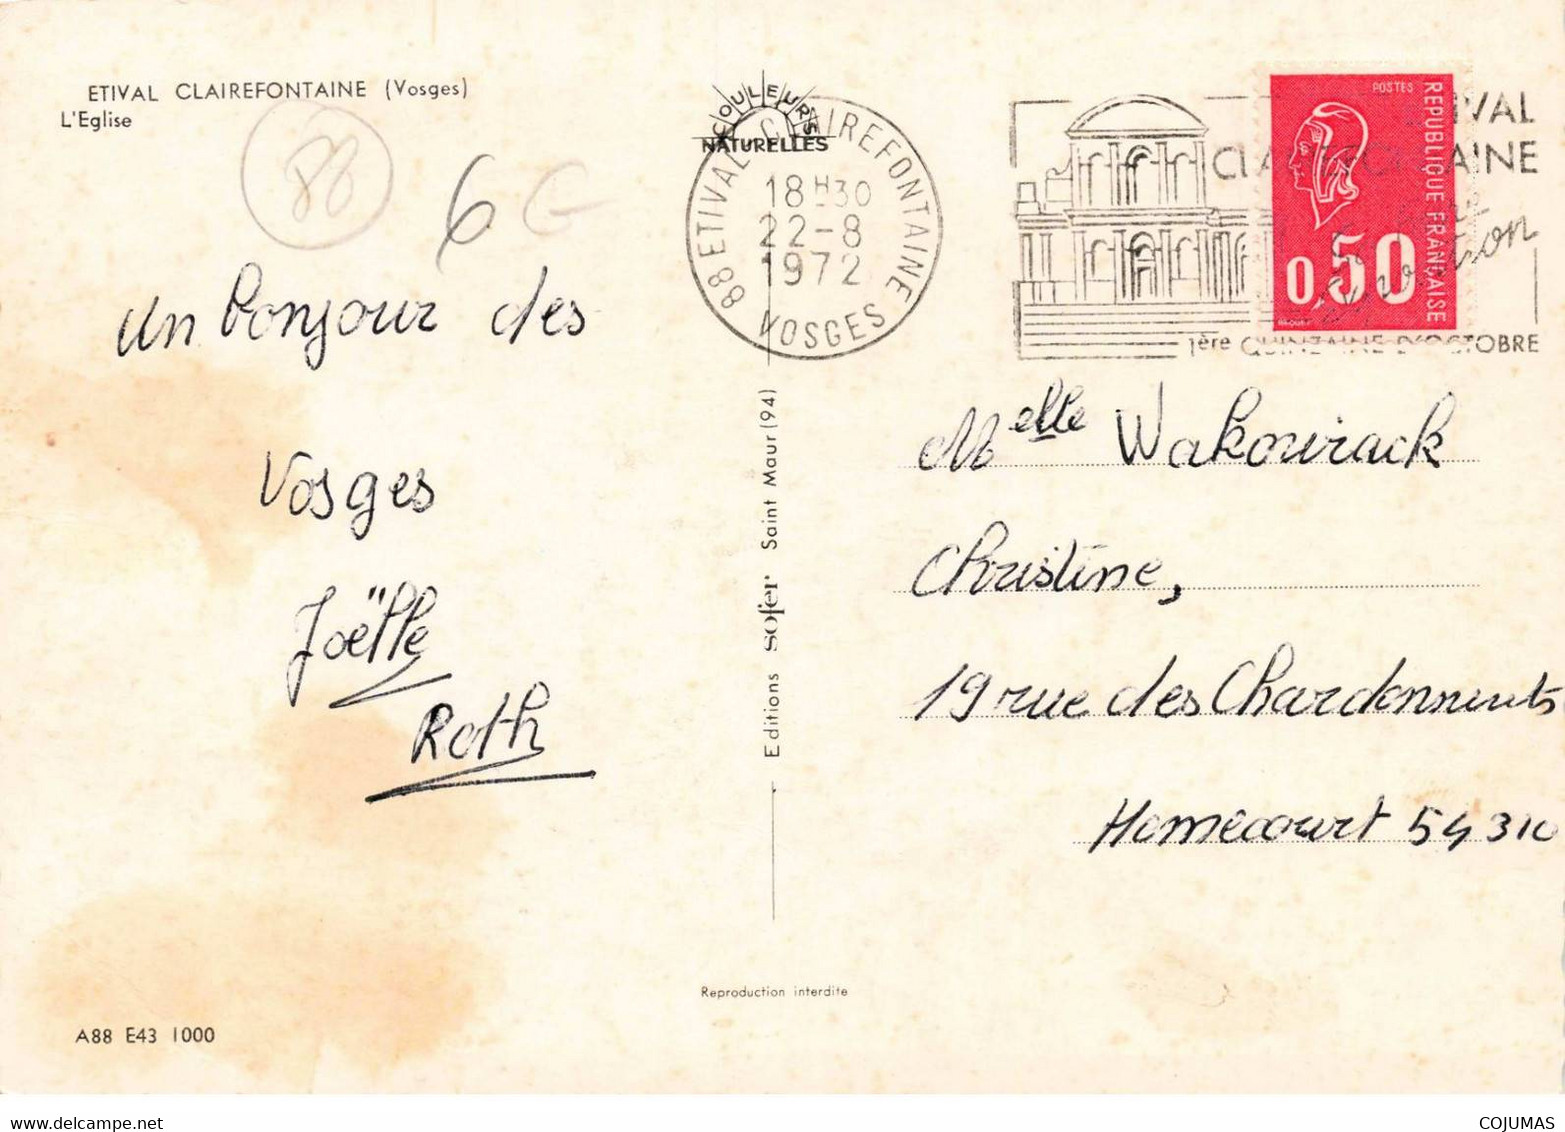 ETIVAL CLAIREFONTAINE (Vosges)
L'Eglise
88
6 €
un bonjour des
Vosges
Joëlle
Roth
A88 E43 1000
COULEURS
NATURELLES
88 ETIVAL CLAIREFONTAINE
18H30
22-8
1972
VOSGES
Editions sofer Saint Maur (94)
Reproduction interdite
POSTES
REPUBLIQUE FRANÇAISE
0,50
1ère QUINZAINE D'OCTOBRE
Melle Wakowiack
Christine,
19 rue des Chardonnerets
Homécourt 54310
COJUMAS